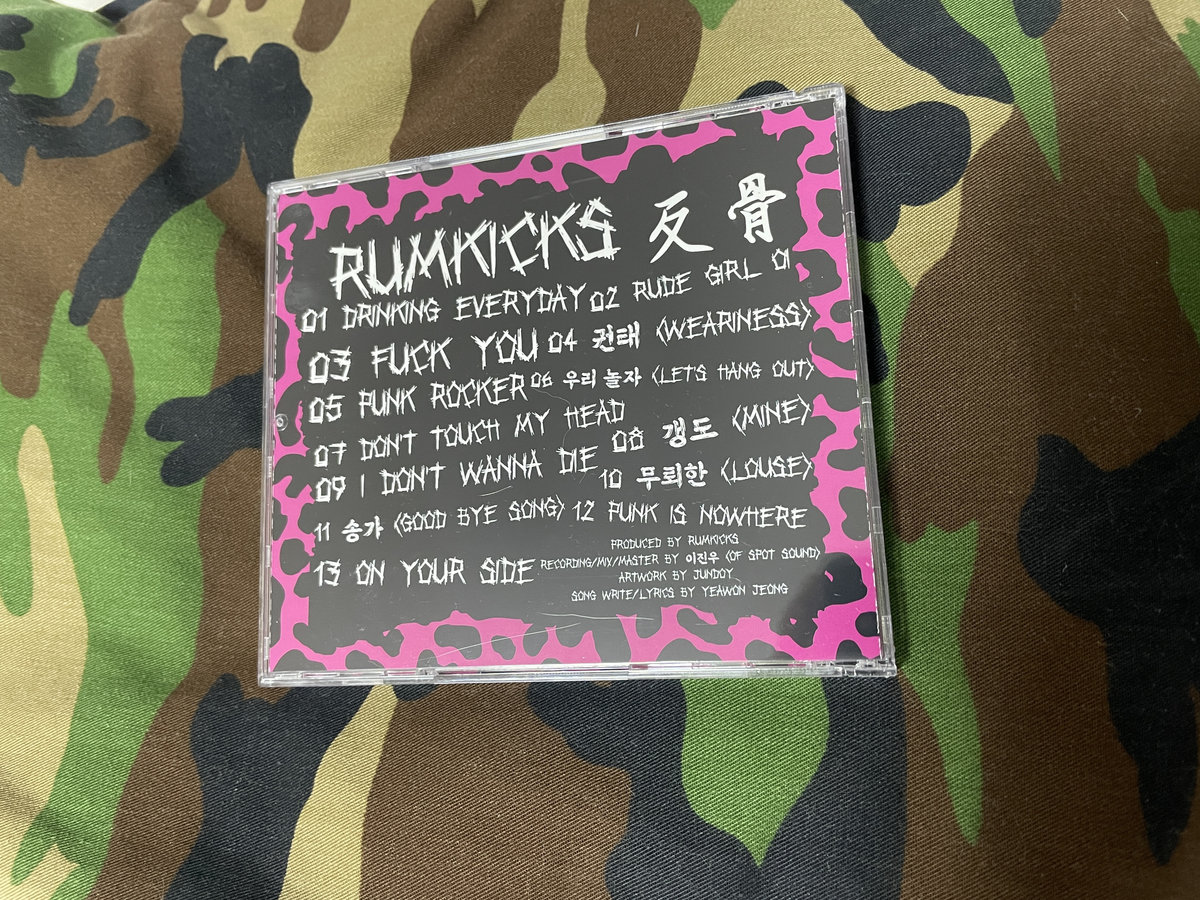 RUMKICKS 反骨
01 DRINKING EVERYDAY 02 RUDE GIRL OI
03 FUCK YOU 04 권태 <WEARINESS>
05 PUNK ROCKER 06 우리 놀자 <LET'S HANG OUT>
07 DON'T TOUCH MY HEAD 08 갱도 <MINE>
09 I DON'T WANNA DIE 10 무뢰한 <LOUSE>
11 송가 <GOOD BYE SONG> 12 PUNK IS NOWHERE
13 ON YOUR SIDE
PRODUCED BY RUMKICKS
RECORDING/MIX/MASTER BY 이진우 <OF SPOT SOUND>
ARTWORK BY JUNDOY
SONG WRITE/LYRICS BY YEAWON JEONG